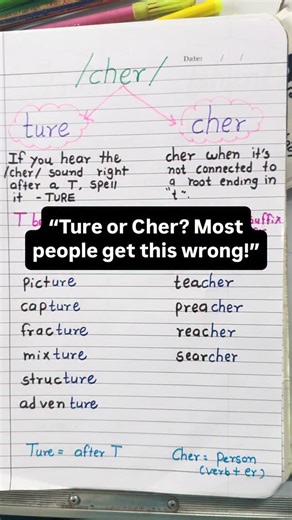 Date: / /
/cher/
ture
cher
If you hear the
/cher/ sound right
after a T, spell
it - TURE
cher when it's
not connected to
a root ending in
"t".
T
suffix
"Ture or Cher? Most
people get this wrong!"
picture
capture
fracture
mixture
structure
adventure
teacher
preacher
reacher
searcher
Ture = after T
Cher = person
(verb + er)